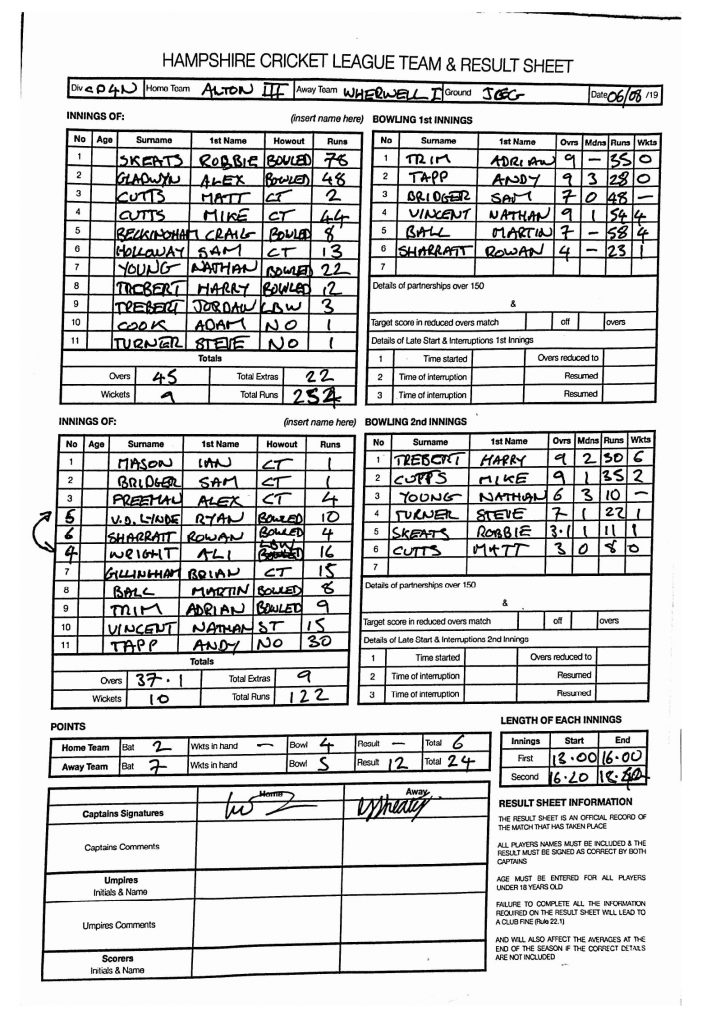 HAMPSHIRE CRICKET LEAGUE TEAM & RESULT SHEET
Div CP4N Home Team ALTON III Away Team WHERWELL I Ground JCEG Date 06/08 /19
INNINGS OF: (insert name here)
No Age Surname 1st Name Howout Runs
1 SKEATS ROBBIE BOWLED 76
2 GLADWYN ALEX BOWLED 48
3 CUTTS MATT CT 2
4 CUTTS MIKE CT 44
5 BECKINGHAM CRAIG BOWLED 8
6 HOLLOWAY SAM CT 13
7 YOUNG NATHAN BOWLED 22
8 TREBERT HARRY BOWLED 12
9 TREBERT JORDAN LBW 3
10 COOK ADAM NO 1
11 TURNER STEVE NO 1
Totals
Overs 45 Total Extras 22
Wickets 9 Total Runs 252
BOWLING 1st INNINGS
No Surname 1st Name Ovrs Mdns Runs Wkts
1 TRIM ADRIAN 9 – 35 0
2 TAPP ANDY 9 3 28 0
3 BRIDGER SAM 7 0 48 –
4 VINCENT NATHAN 9 1 54 4
5 BALL MARTIN 7 – 58 4
6 SHARRATT ROWAN 4 – 23 1
7
Details of partnerships over 150
&
Target score in reduced overs match off overs
Details of Late Start & Interruptions 1st Innings
1 Time started Overs reduced to
2 Time of interruption Resumed
3 Time of interruption Resumed
INNINGS OF: (insert name here)
No Age Surname 1st Name Howout Runs
1 MASON IAN CT 1
2 BRIDGER SAM CT 1
3 FREEMAN ALEX CT 4
5 V.D. LYNDE RYAN BOWLED 10
6 SHARRATT ROWAN BOWLED 4
4 WRIGHT ALI LBW 16
7 GILLINGHAM BRIAN CT 15
8 BALL MARTIN BOWLED 8
9 TRIM ADRIAN BOWLED 9
10 VINCENT NATHAN ST 15
11 TAPP ANDY NO 30
Totals
Overs 37.1 Total Extras 9
Wickets 10 Total Runs 122
BOWLING 2nd INNINGS
No Surname 1st Name Ovrs Mdns Runs Wkts
1 TREBERT HARRY 9 2 30 6
2 CUTTS MIKE 9 1 35 2
3 YOUNG NATHAN 6 3 10 –
4 TURNER STEVE 7 1 22 1
5 SKEATS ROBBIE 3.1 1 11 1
6 CUTTS MATT 3 0 8 0
7
Details of partnerships over 150
&
Target score in reduced overs match off overs
Details of Late Start & Interruptions 2nd Innings
1 Time started Overs reduced to
2 Time of interruption Resumed
3 Time of interruption Resumed
POINTS
Home Team Bat 2 Wkts in hand – Bowl 4 Result – Total 6
Away Team Bat 7 Wkts in hand Bowl 5 Result 12 Total 24
LENGTH OF EACH INNINGS
Innings Start End
First 13.00 16.00
Second 16.20
Home Away
Captains Signatures
Captains Comments
Umpires
Initials & Name
Umpires Comments
Scorers
Initials & Name
RESULT SHEET INFORMATION
THE RESULT SHEET IS AN OFFICIAL RECORD OF
THE MATCH THAT HAS TAKEN PLACE
ALL PLAYERS NAMES MUST BE INCLUDED & THE
RESULT MUST BE SIGNED AS CORRECT BY BOTH
CAPTAINS
AGE MUST BE ENTERED FOR ALL PLAYERS
UNDER 18 YEARS OLD
FAILURE TO COMPLETE ALL THE INFORMATION
REQUIRED ON THE RESULT SHEET WILL LEAD TO
A CLUB FINE (Rule 22.1)
AND WILL ALSO AFFECT THE AVERAGES AT THE
END OF THE SEASON IF THE CORRECT DETAILS
ARE NOT INCLUDED